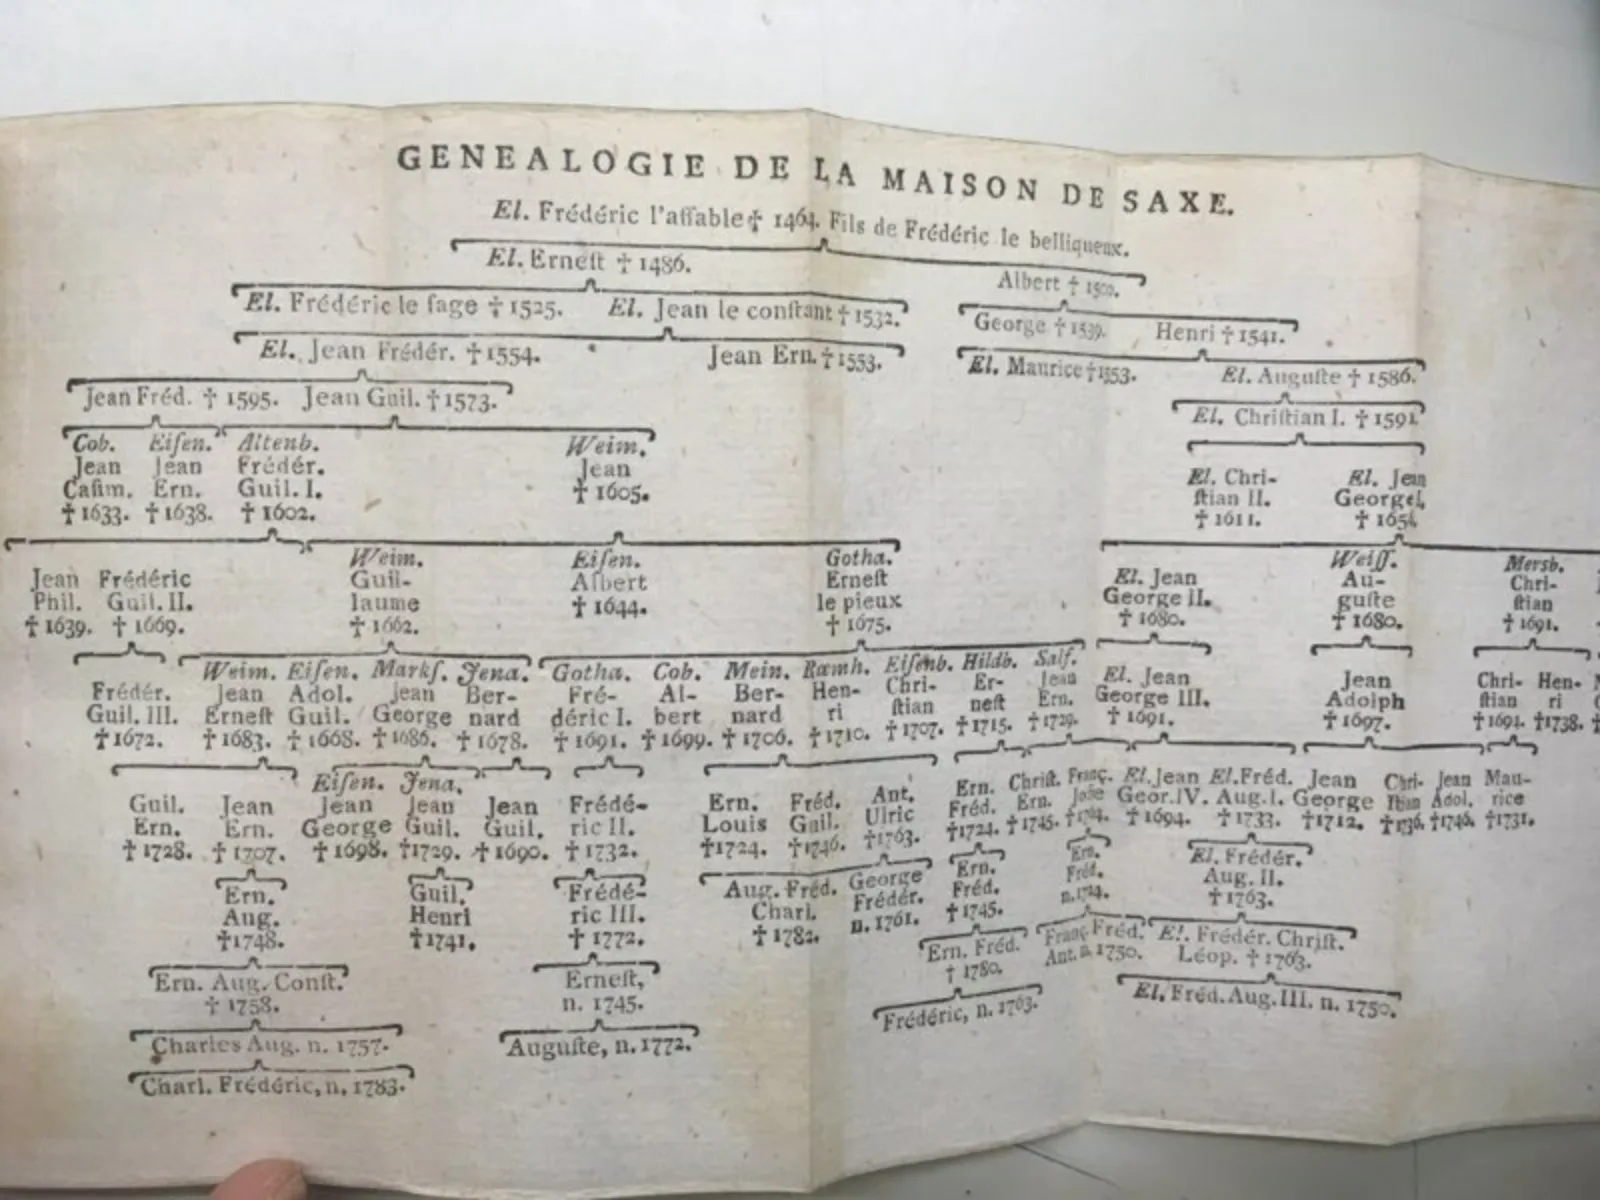 GENEALOGIE DE LA MAISON DE SAXE.
El. Frédéric l'affable † 1464. Fils de Frédéric le belliqueux.
El. Erneſt † 1486.
Albert † 1500.
El. Frédéric le ſage † 1525. El. Jean le conſtant † 1532.
George † 1539. Henri † 1541.
El. Jean Frédér. † 1554. Jean Ern. † 1553.
El. Maurice † 1553. El. Auguſte † 1586.
Jean Fréd. † 1595. Jean Guil. † 1573.
El. Chriſtian I. † 1591
Cob. Eiſen. Altenb. Weim.
Jean Jean Frédér. Jean
Caſim. Ern. Guil. I. † 1605.
† 1633. † 1638. † 1602.
El. Chri- El. Jean
ſtian II. George I.
† 1611. † 165
Weim. Eiſen. Gotha. Weiſſ. Mersb.
Jean Frédéric Guil- Albert Erneſt El. Jean Au- Chri-
Phil. Guil. II. laume † 1644. le pieux George II. guſte ſtian
† 1639. † 1669. † 1662. † 1675. † 1680. † 1680. † 1691.
Weim. Eiſen. Markſ. Jena. Gotha. Cob. Mein. Rœmh. Eiſenb. Hildb. Salf.
Frédér. Jean Adol. Jean Ber- Fré- Al- Ber- Hen- Chri- Er- Jean El. Jean Jean Chri- Hen-
Guil. III. Erneſt Guil. George nard déric I. bert nard ri ſtian neſt Ern. George III. Adolph ſtian ri
† 1672. † 1683. † 1668. † 1686. † 1678. † 1691. † 1699. † 1706. † 1710. † 1707. † 1715. † 1729. † 1691. † 1697. † 1694. † 1738.
Eiſen. Jena.
Guil. Jean Jean Jean Jean Frédé- Ern. Fréd. Ant. Ern. Chriſt. Franç. El. Jean El. Fréd. Jean Chri- Jean Mau-
Ern. Ern. George Guil. Guil. ric II. Louis Guil. Ulric Fréd. Ern. Joſe Geor. IV. Aug. I. George ſtian Adol. rice
† 1728. † 1707. † 1698. † 1729. † 1690. † 1732. † 1724. † 1746. † 1763. † 1724. † 1745. † 1764. † 1694. † 1733. † 1712. † 1736. † 1746. † 1731.
Ern. Guil. Frédé- Aug. Fréd. George Ern. Ern. El. Frédér.
Aug. Henri ric III. Charl. Frédér. Fréd. Fréd. Aug. II.
† 1748. † 1741. † 1772. † 1782. n. 1761. † 1745. n. 1724. † 1763.
Ern. Aug. Conſt. Erneſt, Ern. Fréd. Franç. Fréd. El. Frédér. Chriſt.
† 1758. n. 1745. † 1780. Ant. n. 1750. Léop. † 1763.
Charles Aug. n. 1757. Auguſte, n. 1772. Frédéric, n. 1763. El. Fréd. Aug. III. n. 1750.
Charl. Frédéric, n. 1783.